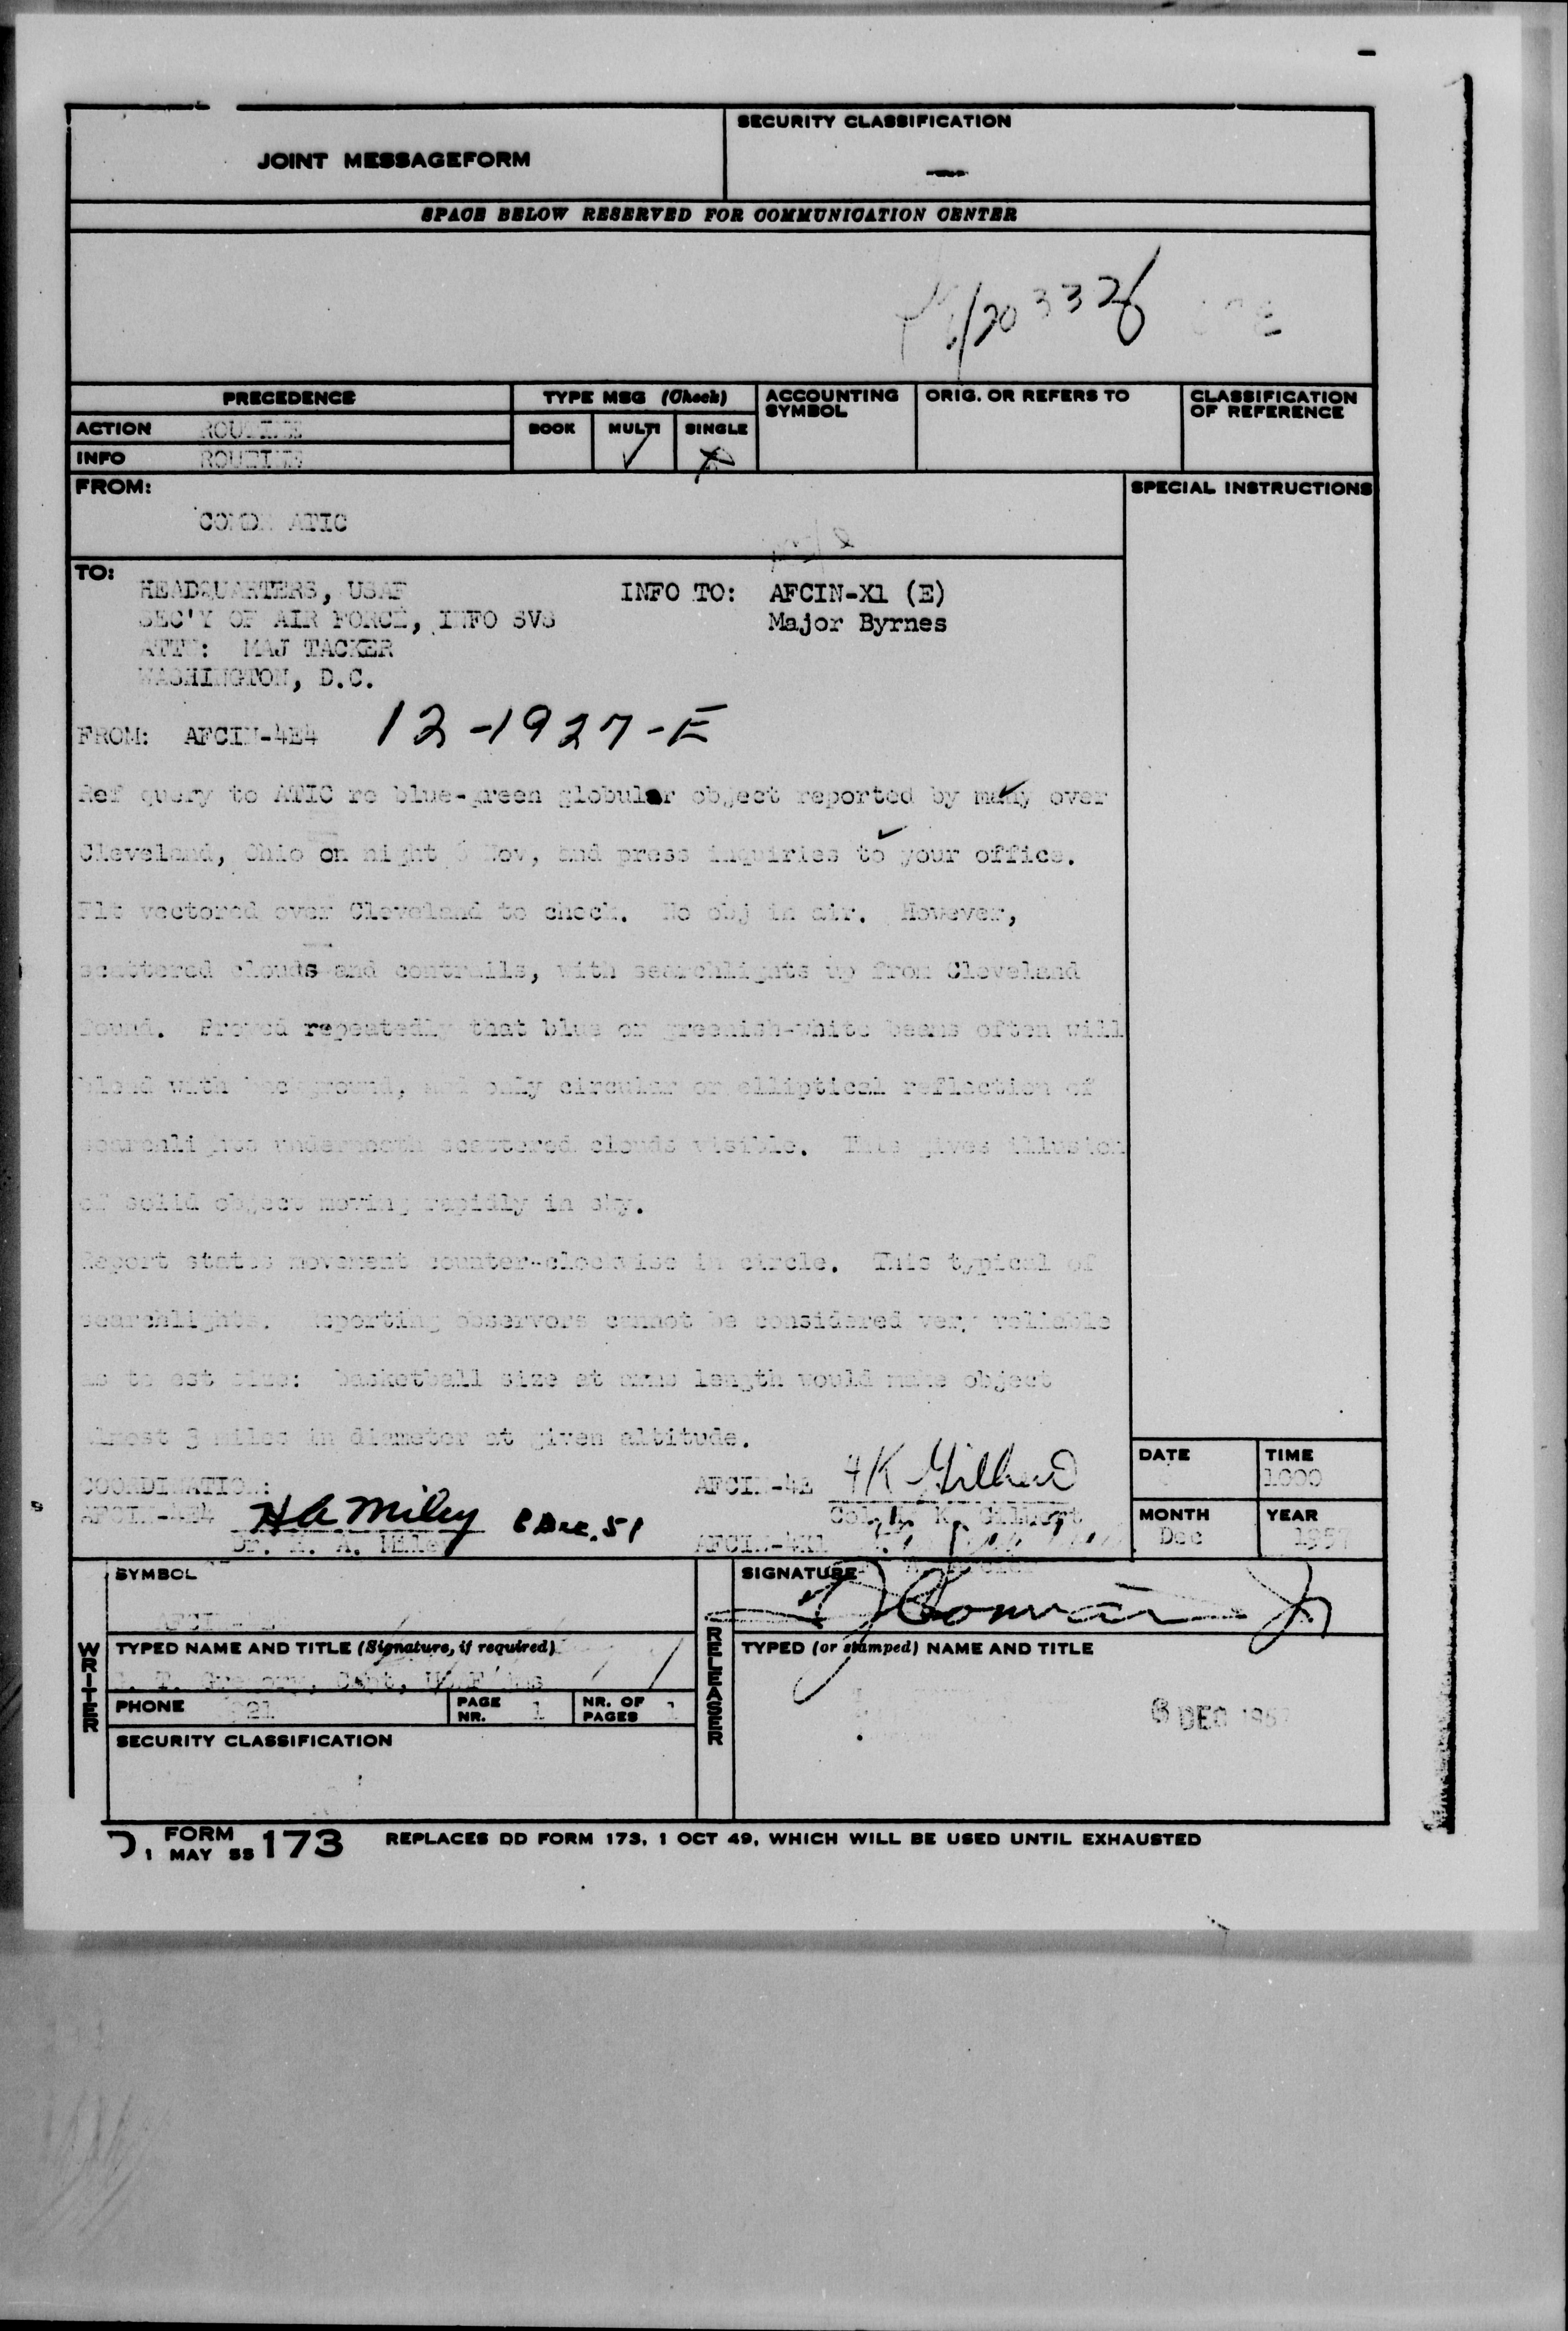 JOINT MESSAGEFORM
SECURITY CLASSIFICATION
SPACE BELOW RESERVED FOR COMMUNICATION CENTER
PRECEDENCE
TYPE MSG (Check)
ACCOUNTING SYMBOL
ORIG. OR REFERS TO
CLASSIFICATION OF REFERENCE
ACTION ROUTINE
BOOK MULTI SINGLE
INFO ROUTINE
FROM:
SPECIAL INSTRUCTIONS
COMDR ATIC
TO:
HEADQUARTERS, USAF INFO TO: AFCIN-X1 (E)
SEC'Y OF AIR FORCE, INFO SVS Major Byrnes
ATTN: MAJ TACKER
WASHINGTON, D.C.
FROM: AFCIN-4E4 12-1927-E
Ref query to ATIC re blue-green globular object reported by many over
Cleveland, Ohio on night Nov, and press inquiries to your office.
Flt vectored over Cleveland to check. No obj in air. However,
scattered clouds and contrails, with searchlights up from Cleveland
found. Proved repeatedly that blue or greenish-white beams often will
blend with background, and only circular or elliptical reflection of
searchlights underneath scattered clouds visible. This gives illusion
of solid object moving rapidly in sky.
Report states movement counter-clockwise in circle. This typical of
searchlights. Reporting observors cannot be considered very reliable
as to est size: basketball size at arms length would make object
almost 3 miles in diameter at given altitude.
COORDINATION:
AFCIN-4E4 H A Miley Dec.
Dr. H. A. Miley
AFCIN-4E H K Gilbert
Col H. K. Gilbert
AFCIN-4X1
DATE
TIME
1000
MONTH
Dec
YEAR
1957
SYMBOL
SIGNATURE
WRITER
TYPED NAME AND TITLE (Signature, if required)
T. Gregory, Capt, USAF
PHONE
PAGE NR. 1
NR. OF PAGES 1
SECURITY CLASSIFICATION
RELEASER
TYPED (or stamped) NAME AND TITLE
DEC 1957
FORM 173
1 MAY 55
REPLACES DD FORM 173, 1 OCT 49, WHICH WILL BE USED UNTIL EXHAUSTED